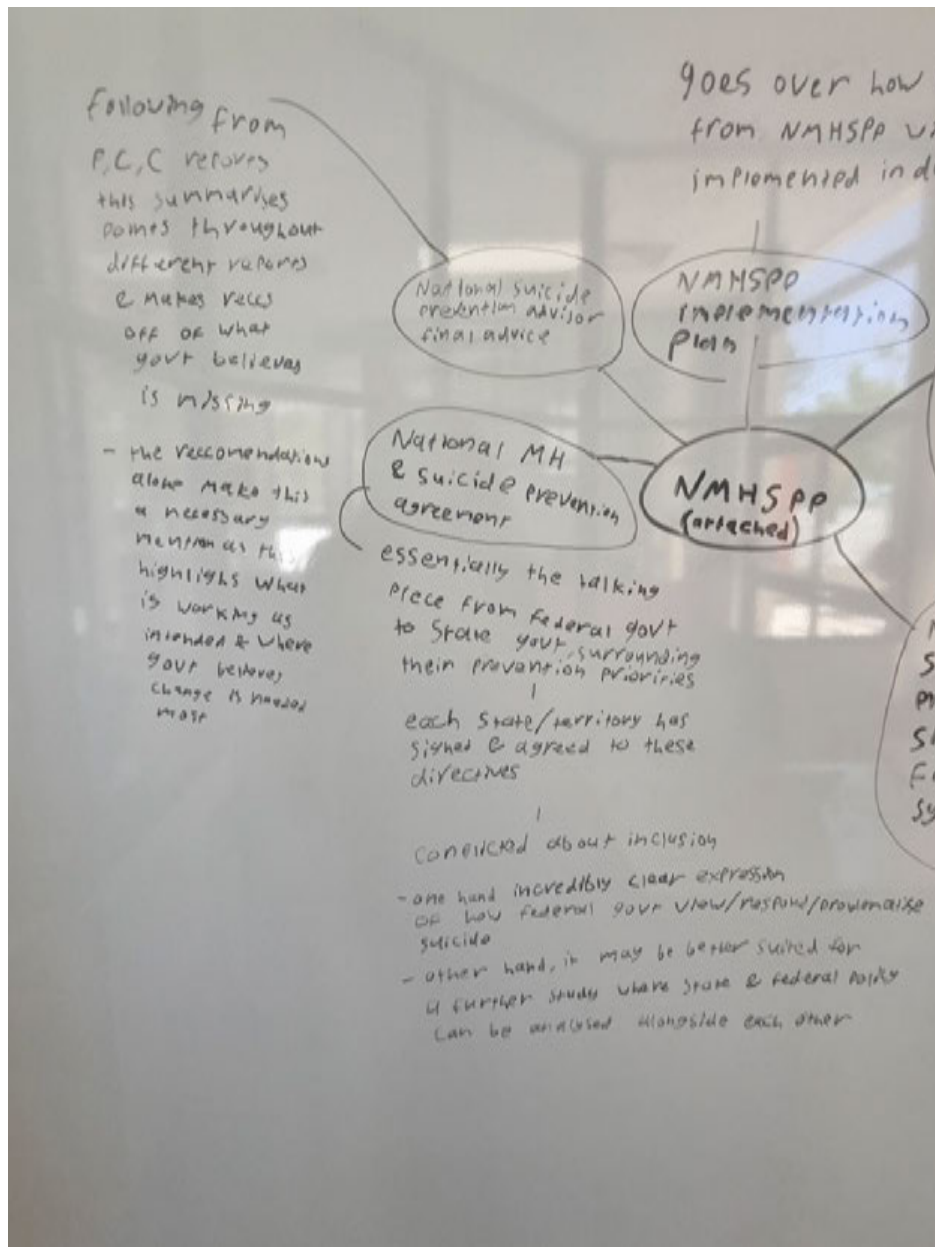 Following from
P, C, C repores
this summarises
points throughout
different repores
& makes reccs
off of what
govt believes
is missing
- the reccomendations
alone make this
a necessary
mention as this
highlighs what
is working as
intended & where
govt believes
change is needed
most
National suicide
prevention advisor
final advice
goes over how
from NMHSPP
implemented in
NMHSPP
implementation
plan
National MH
& suicide prevention
agreement
NMHSPP
(attached)
essentially the talking
piece from federal govt
to State govt surrounding
their prevention priorities
each State/territory has
signed & agreed to these
directives
conflicted about inclusion
- one hand incredibly clear expression
of how federal govt view/respond/problematise
suicide
- other hand, it may be better suited for
a further study where state & federal policy
can be analysed alongside each other